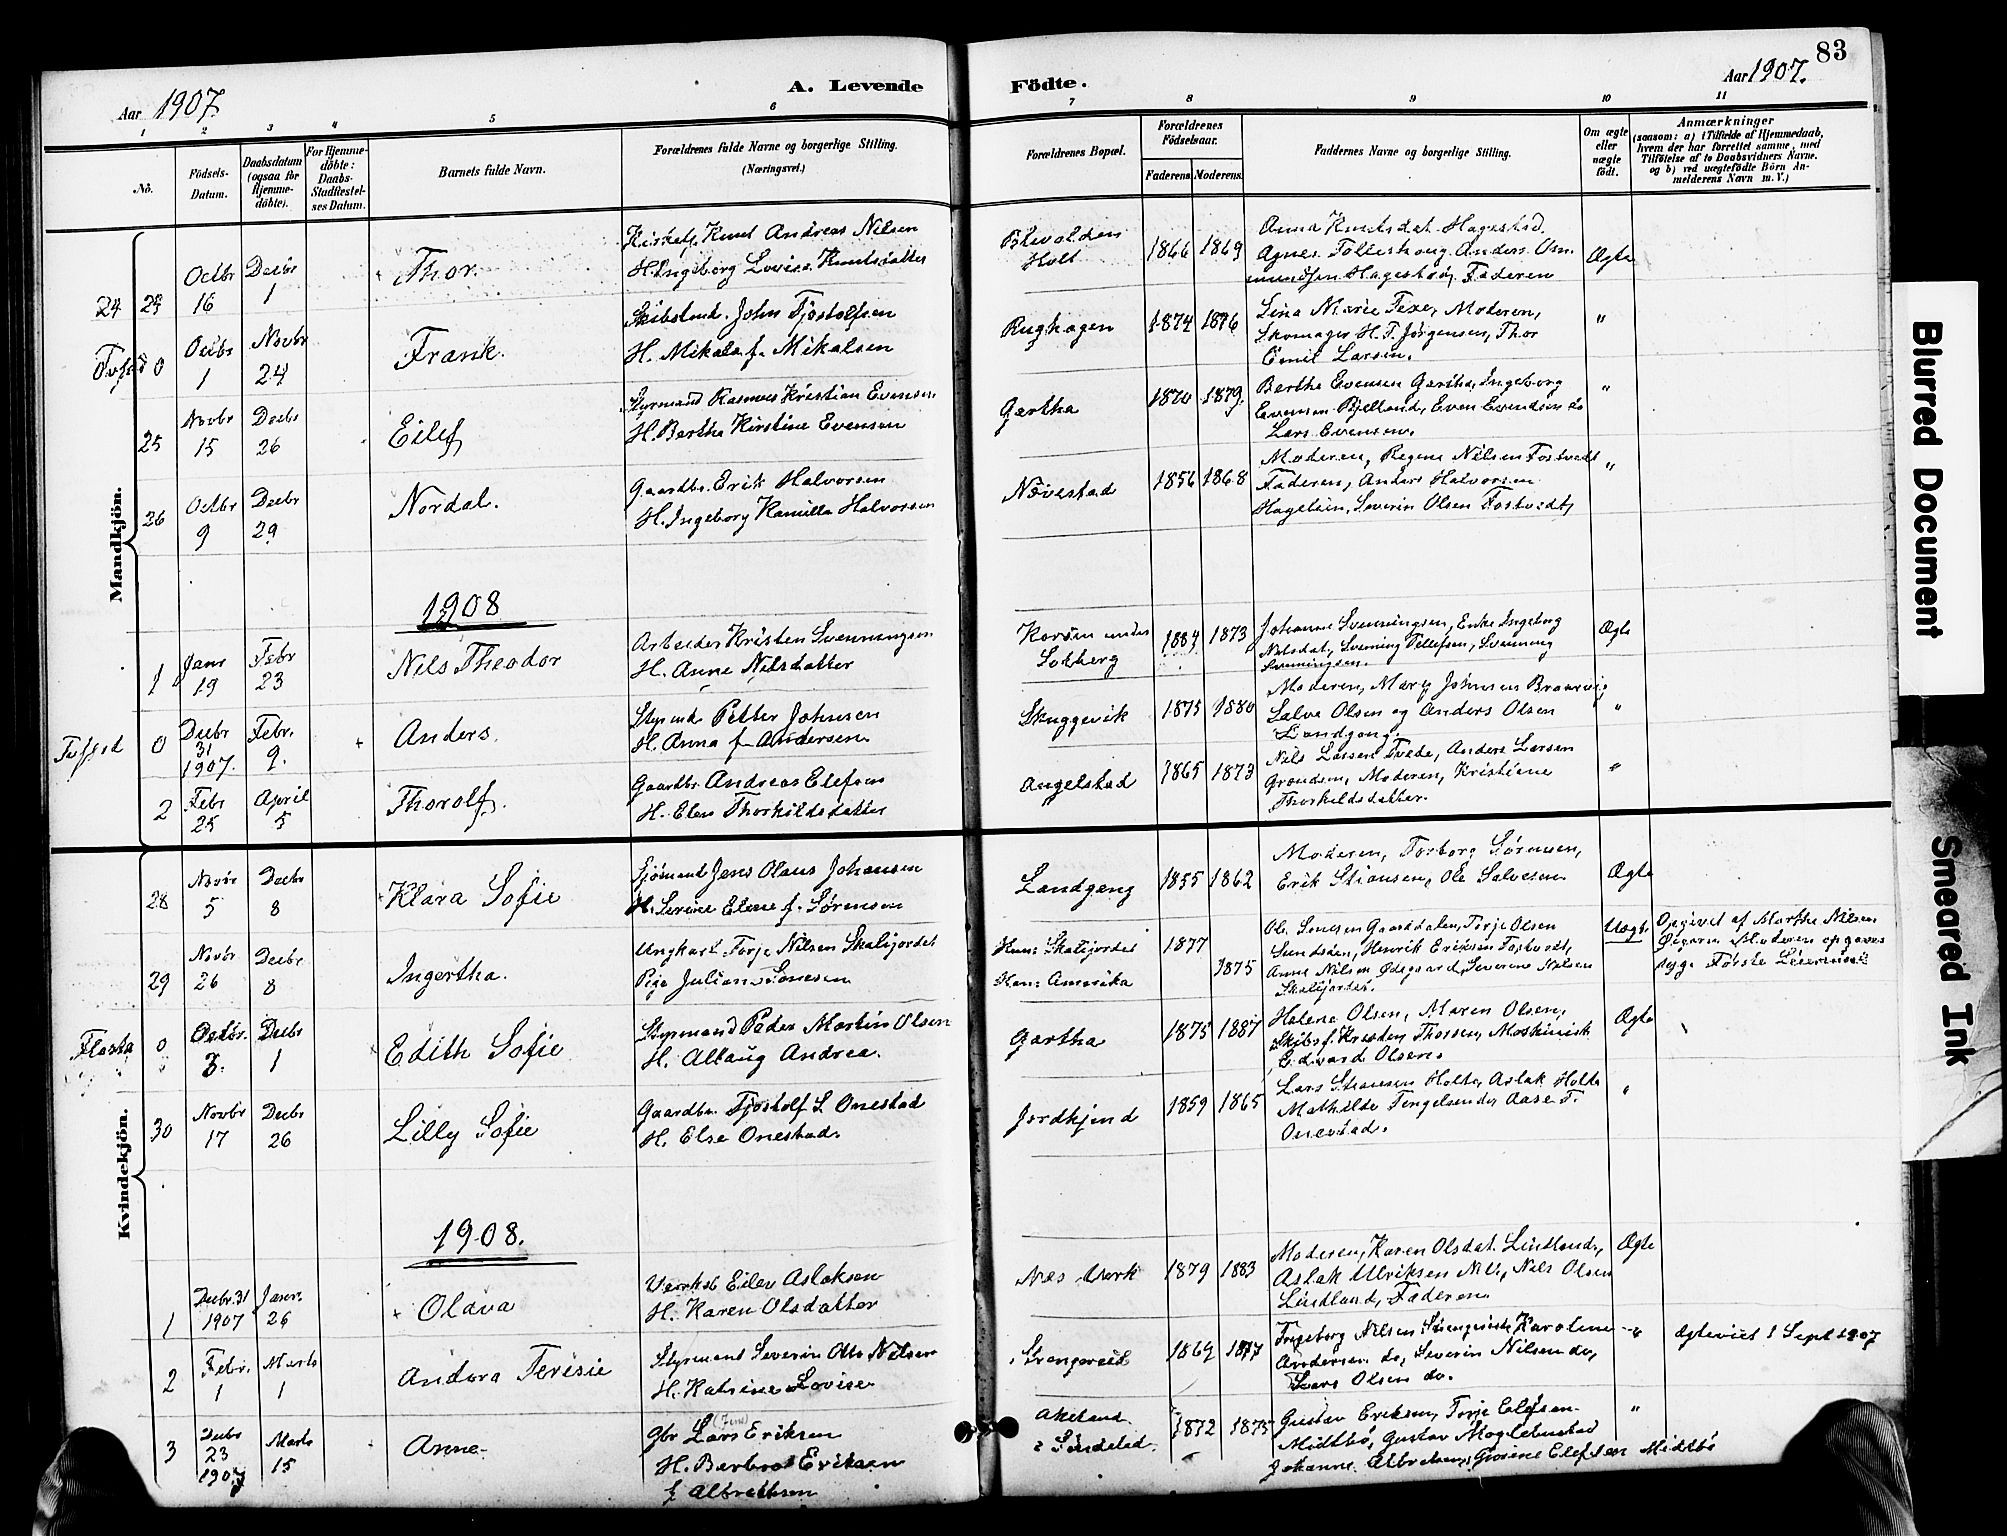 83
Aar 1907.
A. Levende Födte.
Aar 1907.
1 2 3 4 5 6 7 8 9 10 11
No.
Födsels-Datum.
Daabsdatum (ogsaa for Hjemme-döbte).
For Hjemme-döbte: Daabs-Stadfestel-ses Datum.
Barnets fulde Navn.
Forældrenes fulde Navne og borgerlige Stilling.
(Næringsvei.)
Forældrenes Bopæl.
Forældrenes Födselsaar.
Faderens. Moderens.
Faddernes Navne og borgerlige Stilling.
Om ægte eller uægte födt.
Anmærkninger
(saasom: a) i Tilfælde af Hjemmedaab, hvem der har forrettet samme, med Tilföielse af to Daabsvidners Navne, og b) ved uægtefödte Börn Anmelderens Navn m. V.)
Mandkjön.
24 Octbr 16 Decbr 1 Thor.
Knut Andreas Nilsen
H. Ingeborg Lovise Knutsdatter
Holt 1866 1869
Anna Knutsdat. Hagestad.
Agnes Anders
Hagestad, Faderen
Ægte
0 Octbr 1 Novbr 24 Frank.
John Fjostolfsen
H. Mikala f. Mikalsen
Rughagen 1874 1876
Lina Marie Moderen,
Skomager H. F. Jørgensen, Thor
Emil Larsen.
"
25 Novbr 15 Decbr 26 Eilef
Styrmand Rasmus Kristian Evensen
H. Bertha Kirstine Evensen
Gartha 1870 1879.
Berthe Evensen Gartha, Ingeborg
Evensen Bjelland, Even Evendsen do
Lars Evensen.
"
26 Octbr 9 Decbr 29 Nordal.
Gaardbr. Erik Halvorsen
H. Ingeborg Kamilla Halvorsen
Növestad 1856 1868
Moderen, Regine Nilsen Fostvedt
Faderen, Anders Halvorsen
Severin Olsen Fostvedt,
"
1908
1 Janr 19 Febr 23 Nils Theodor
Arbeider Kristen Svenningsen
H. Anne Nilsdatter
Solberg 1884 1873
Johanne Svenningsen, Enke Ingeborg
Nilsdat, Svenning Tellefsen, Svenning
Svenningsen.
Ægte
0 Decbr 31 1907. Febr. 9. Anders.
Petter Johnsen
H. Anna f. Andersen.
Skuggevik 1875 1880
Moderen, Mary Johnsen
Salve Olsen og Anders Olsen
Landgang.
"
2 Febr 25 April 5 Thorolf.
Gaardbr. Andreas Elefsen
H. Elen Thorkildsdatter
Angelstad 1865 1873
Nils Larsen Tvede, Anders Larsen
Moderen, Kristiane
Thorkildsdatter.
"
Kvindekjön.
28 Novbr 5 Decbr 8 Klara Sofie
Sjömand Jens Olaus Johansen
H. Serine Elene f. Sørensen
Landgang 1855 1862
Moderen, Torborg Sörensen,
Erik Stiansen, Ole Salvesen
Ægte
29 Novbr 26 Decbr 8 Ingertha.
Ungkarl Torje Nilsen Skaligordet
Pige
Han: Skaligordet
Hun: Amerika
1877 1875
Torje Olsen
Henrik Eriksen Fostvedt,
Anne Nilsen Ødegaard, Severine Nilsen
Skaligordet.
Uægte
Opgivet af Marthe Nilsen
Moderen opgaves
Første
Flosta 0 Octbr. 3. Decbr 1 Edith Sofie
Styrmand Peder Martin Olsen
H. Allaug Andrea.
Gartha 1875 1887
Helene Olsen, Maren Olsen,
Skibsf. Kristen Thorsen, Maskinist
Edward Olsen.
Ægte
30 Novbr 17 Decbr 26 Lilly Sofie
Gaardbr. Fjostolf L Onestad
H. Else Onestad.
Jordkjend 1859 1865
Lars Stiansen Holte, Aslak Holte
Mathilde Aase T.
Onestad.
"
1908.
1 Decbr. 31 1907 Janr. 26 Olava
Eilev Aslaksen
H. Karen Olsdatter
Næs Verk 1879 1883
Moderen, Karen Olsdat. Lindland,
Aslak Ulriksen Nils Olsen
Lindland, Faderen.
Ægte
2 Febr. 1 Marts 1 Andora Teresie
Styrmand Severin Otto Nilsen
H. Katrine Lovise
1869 1877
Ingeborg Nilsen Karoline
Andersen do, Severin Nilsen do,
Lars Olsen do.
Ægteviet 1 Sept 1907
3 Decbr 23 1907 Marts 15 Anne
Gbr Lars Eriksen
H. Berbrot Eriksen
f Albretsen
Akeland 1872 1875
Gustav Eriksen, Torje Elefsen
Midtbö, Gustav
Johanne Albretsen, Elefsen Midtbö
"
Blurred Document
Smeared Ink